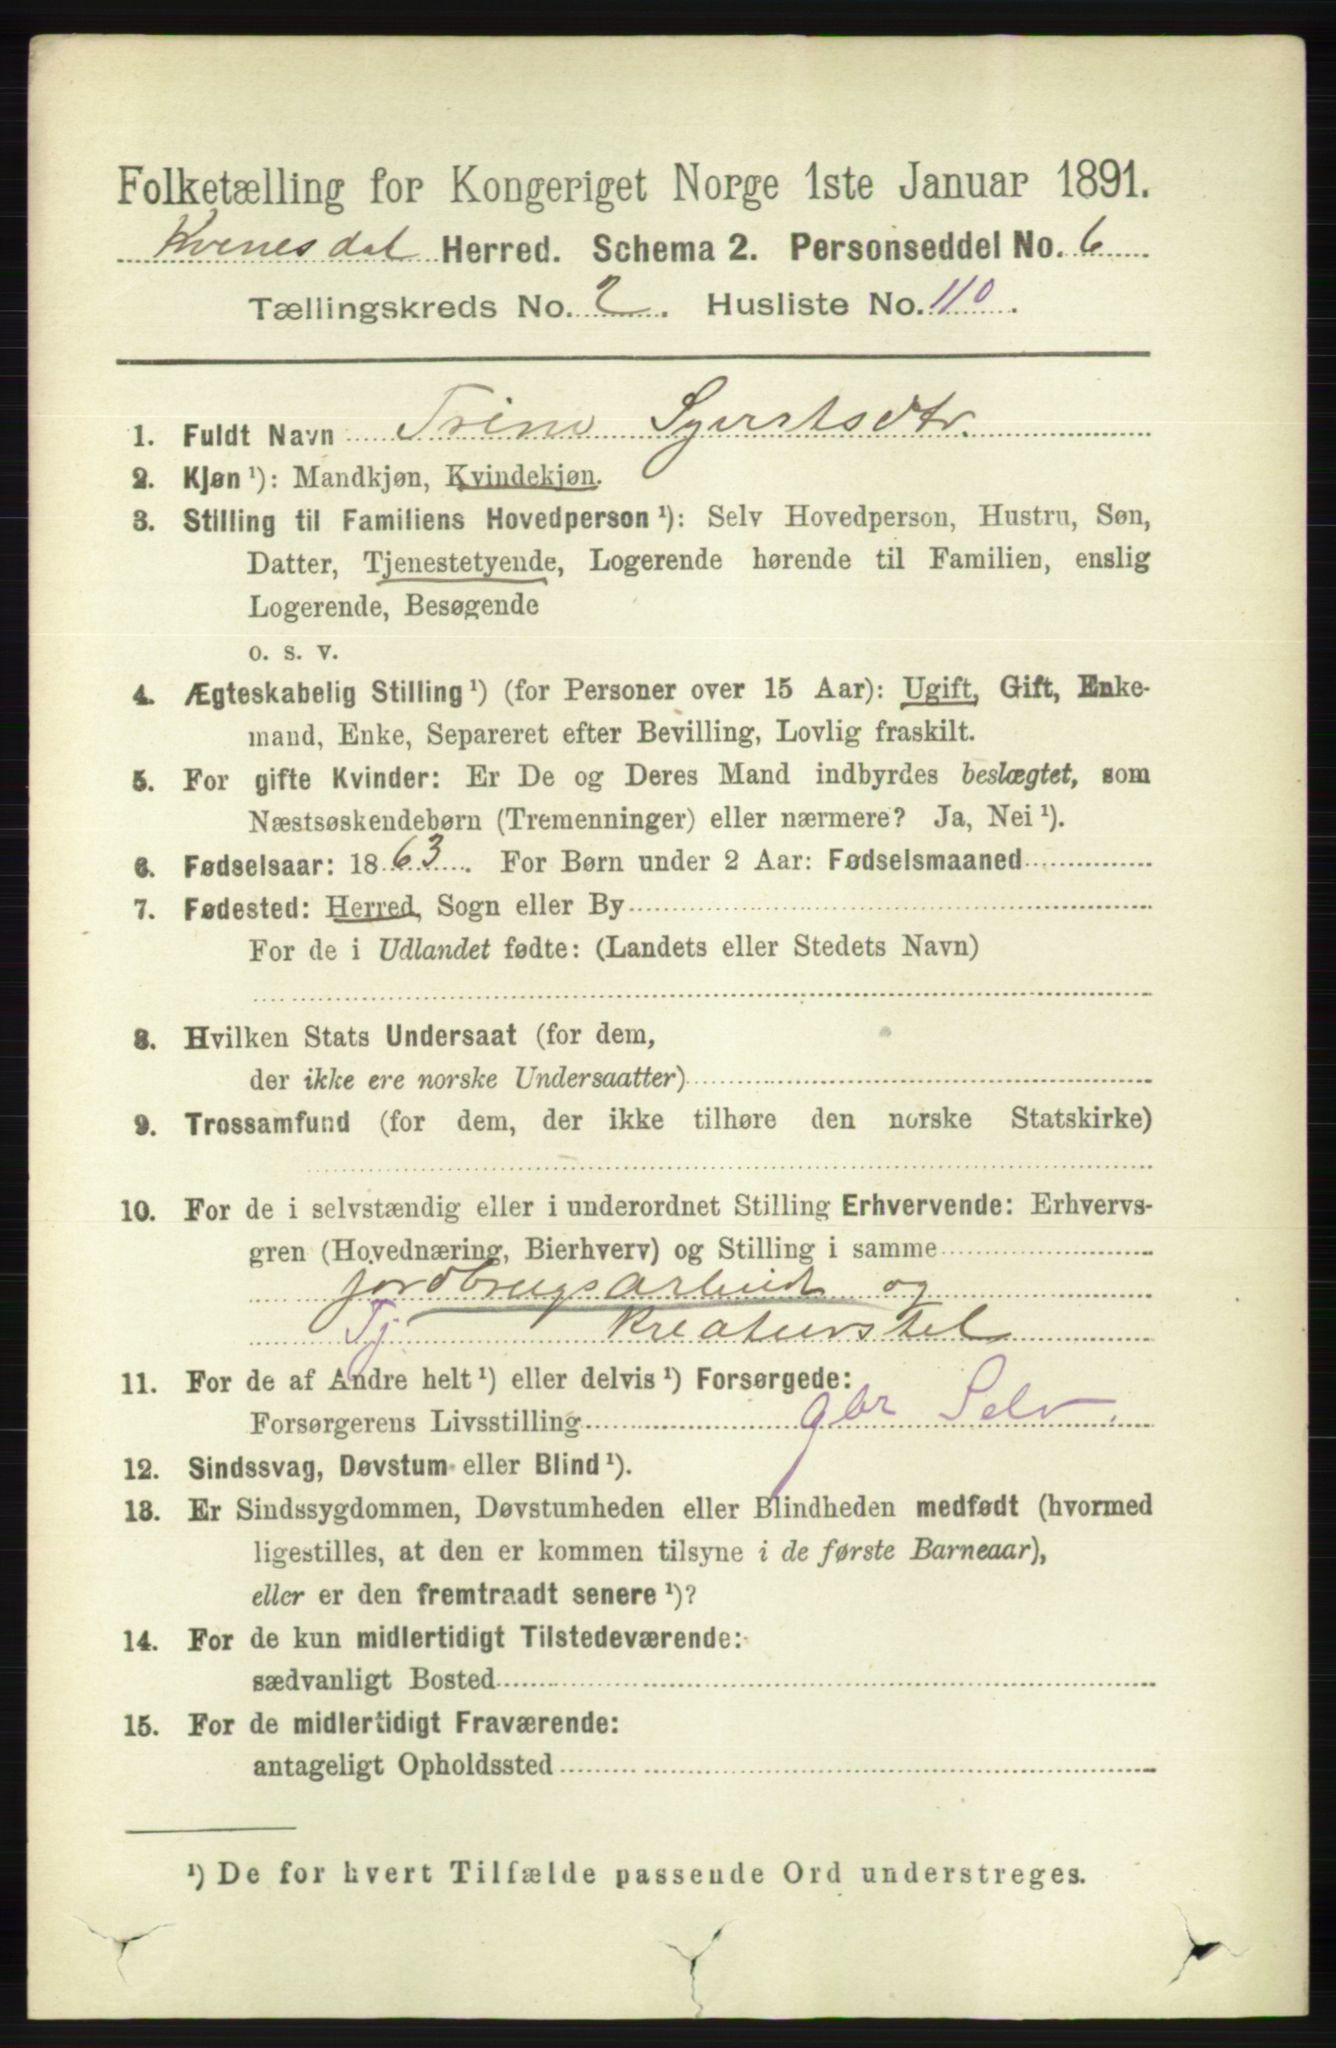 Folketælling for Kongeriget Norge 1ste Januar 1891.
Kvenesdal Herred. Schema 2. Personseddel No. 6
Tællingskreds No. 2. Husliste No. 110.
1. Fuldt Navn Trine Syvertsdtr.
2. Kjøn ¹): Mandkjøn, Kvindekjøn.
3. Stilling til Familiens Hovedperson ¹): Selv Hovedperson, Hustru, Søn,
Datter, Tjenestetyende, Logerende hørende til Familien, enslig
Logerende, Besøgende
o. s. v.
4. Ægteskabelig Stilling ¹) (for Personer over 15 Aar): Ugift, Gift, Enke-
mand, Enke, Separeret efter Bevilling, Lovlig fraskilt.
5. For gifte Kvinder: Er De og Deres Mand indbyrdes beslægtet, som
Næstsøskendebørn (Tremenninger) eller nærmere? Ja, Nei ¹).
6. Fødselsaar: 1863. For Børn under 2 Aar: Fødselsmaaned
7. Fødested: Herred, Sogn eller By
For de i Udlandet fødte: (Landets eller Stedets Navn)
8. Hvilken Stats Undersaat (for dem,
der ikke ere norske Undersaatter)
9. Trossamfund (for dem, der ikke tilhøre den norske Statskirke)
10. For de i selvstændig eller i underordnet Stilling Erhvervende: Erhvervs-
gren (Hovednæring, Bierhverv) og Stilling i samme
jordbrugsarbeid og
Tj Kreaturstel
11. For de af Andre helt ¹) eller delvis ¹) Forsørgede:
Forsørgerens Livsstilling gbr Selv.
12. Sindssvag, Døvstum eller Blind ¹).
13. Er Sindssygdommen, Døvstumheden eller Blindheden medfødt (hvormed
ligestilles, at den er kommen tilsyne i de første Barneaar),
eller er den fremtraadt senere ¹)?
14. For de kun midlertidigt Tilstedeværende:
sædvanligt Bosted
15. For de midlertidigt Fraværende:
antageligt Opholdssted
¹) De for hvert Tilfælde passende Ord understreges.